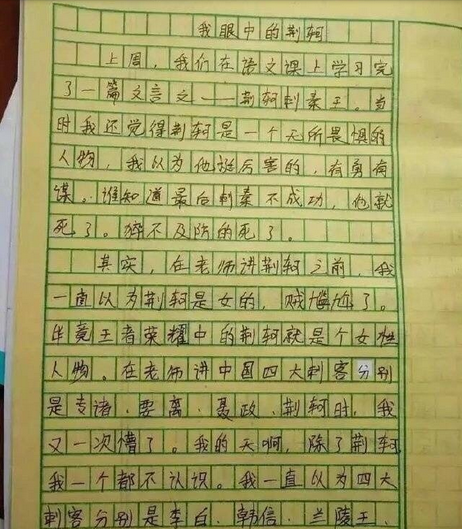 我眼中的荆轲
上周，我们在语文课上学习完
了一篇文言文——荆轲刺秦王。当
时我还觉得荆轲是一个无所畏惧的
人物，我以为他挺厉害的，有勇有
谋。谁知道最后刺秦不成功，他就
死了。猝不及防的死了。
其实，在老师讲荆轲之前，我
一直以为荆轲是女的，贼尴尬了。
毕竟王者荣耀中的荆轲就是个女性
人物。在老师讲中国四大刺客分别
是专诸、要离、聂政、荆轲时，我
又一次懵了。我的天啊，除了荆轲
我一个都不认识。我一直以为四大
刺客分别是李白、韩信、兰陵王、